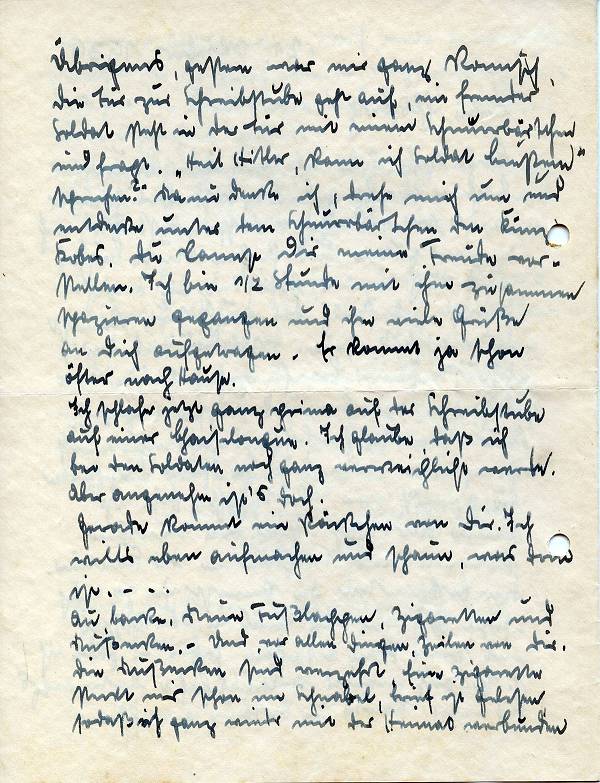 Übrigens, gestern war mir ganz komisch.
Die Tür zur Schreibstube geht auf, ein fremder
Soldat steht in der Tür mit einem Schnurrbärtchen
und fragt. „Heil Hitler, kann ich Soldat
sprechen?" Da nu denke ich, drehe mich um und
entdecke unter dem Schnurrbärtchen den Künz
Kobes. Du kannst Dir meine Freude vor-
stellen. Ich bin 1/2 Stunde mit ihm zusammen
spazieren gegangen und ihm viele Grüße
an Dich aufgetragen. Er kommt ja schon
öfter nach Hause.
Ich schlafe jetzt ganz prima auf der Schreibstube
auf einer Chaiselongue. Ich glaube, daß ich
bei den Soldaten noch ganz verweichlicht werde.
Aber angenehm ist's doch.
Gerade kommt ein Päckchen von Dir. Ich
will's eben aufmachen und schaun, was drin
ist. - - -
Au backe. Neue Fußlappen, Zigaretten und
Nußecken. - Und, vor allen Dingen, Zeilen von Dir.
Die Nußecken sind verzehrt, Eine Zigarette
steckt mir schon im Schnabel, Brief ist gelesen
sodaß ich ganz wieder mit der Heimat verbunden